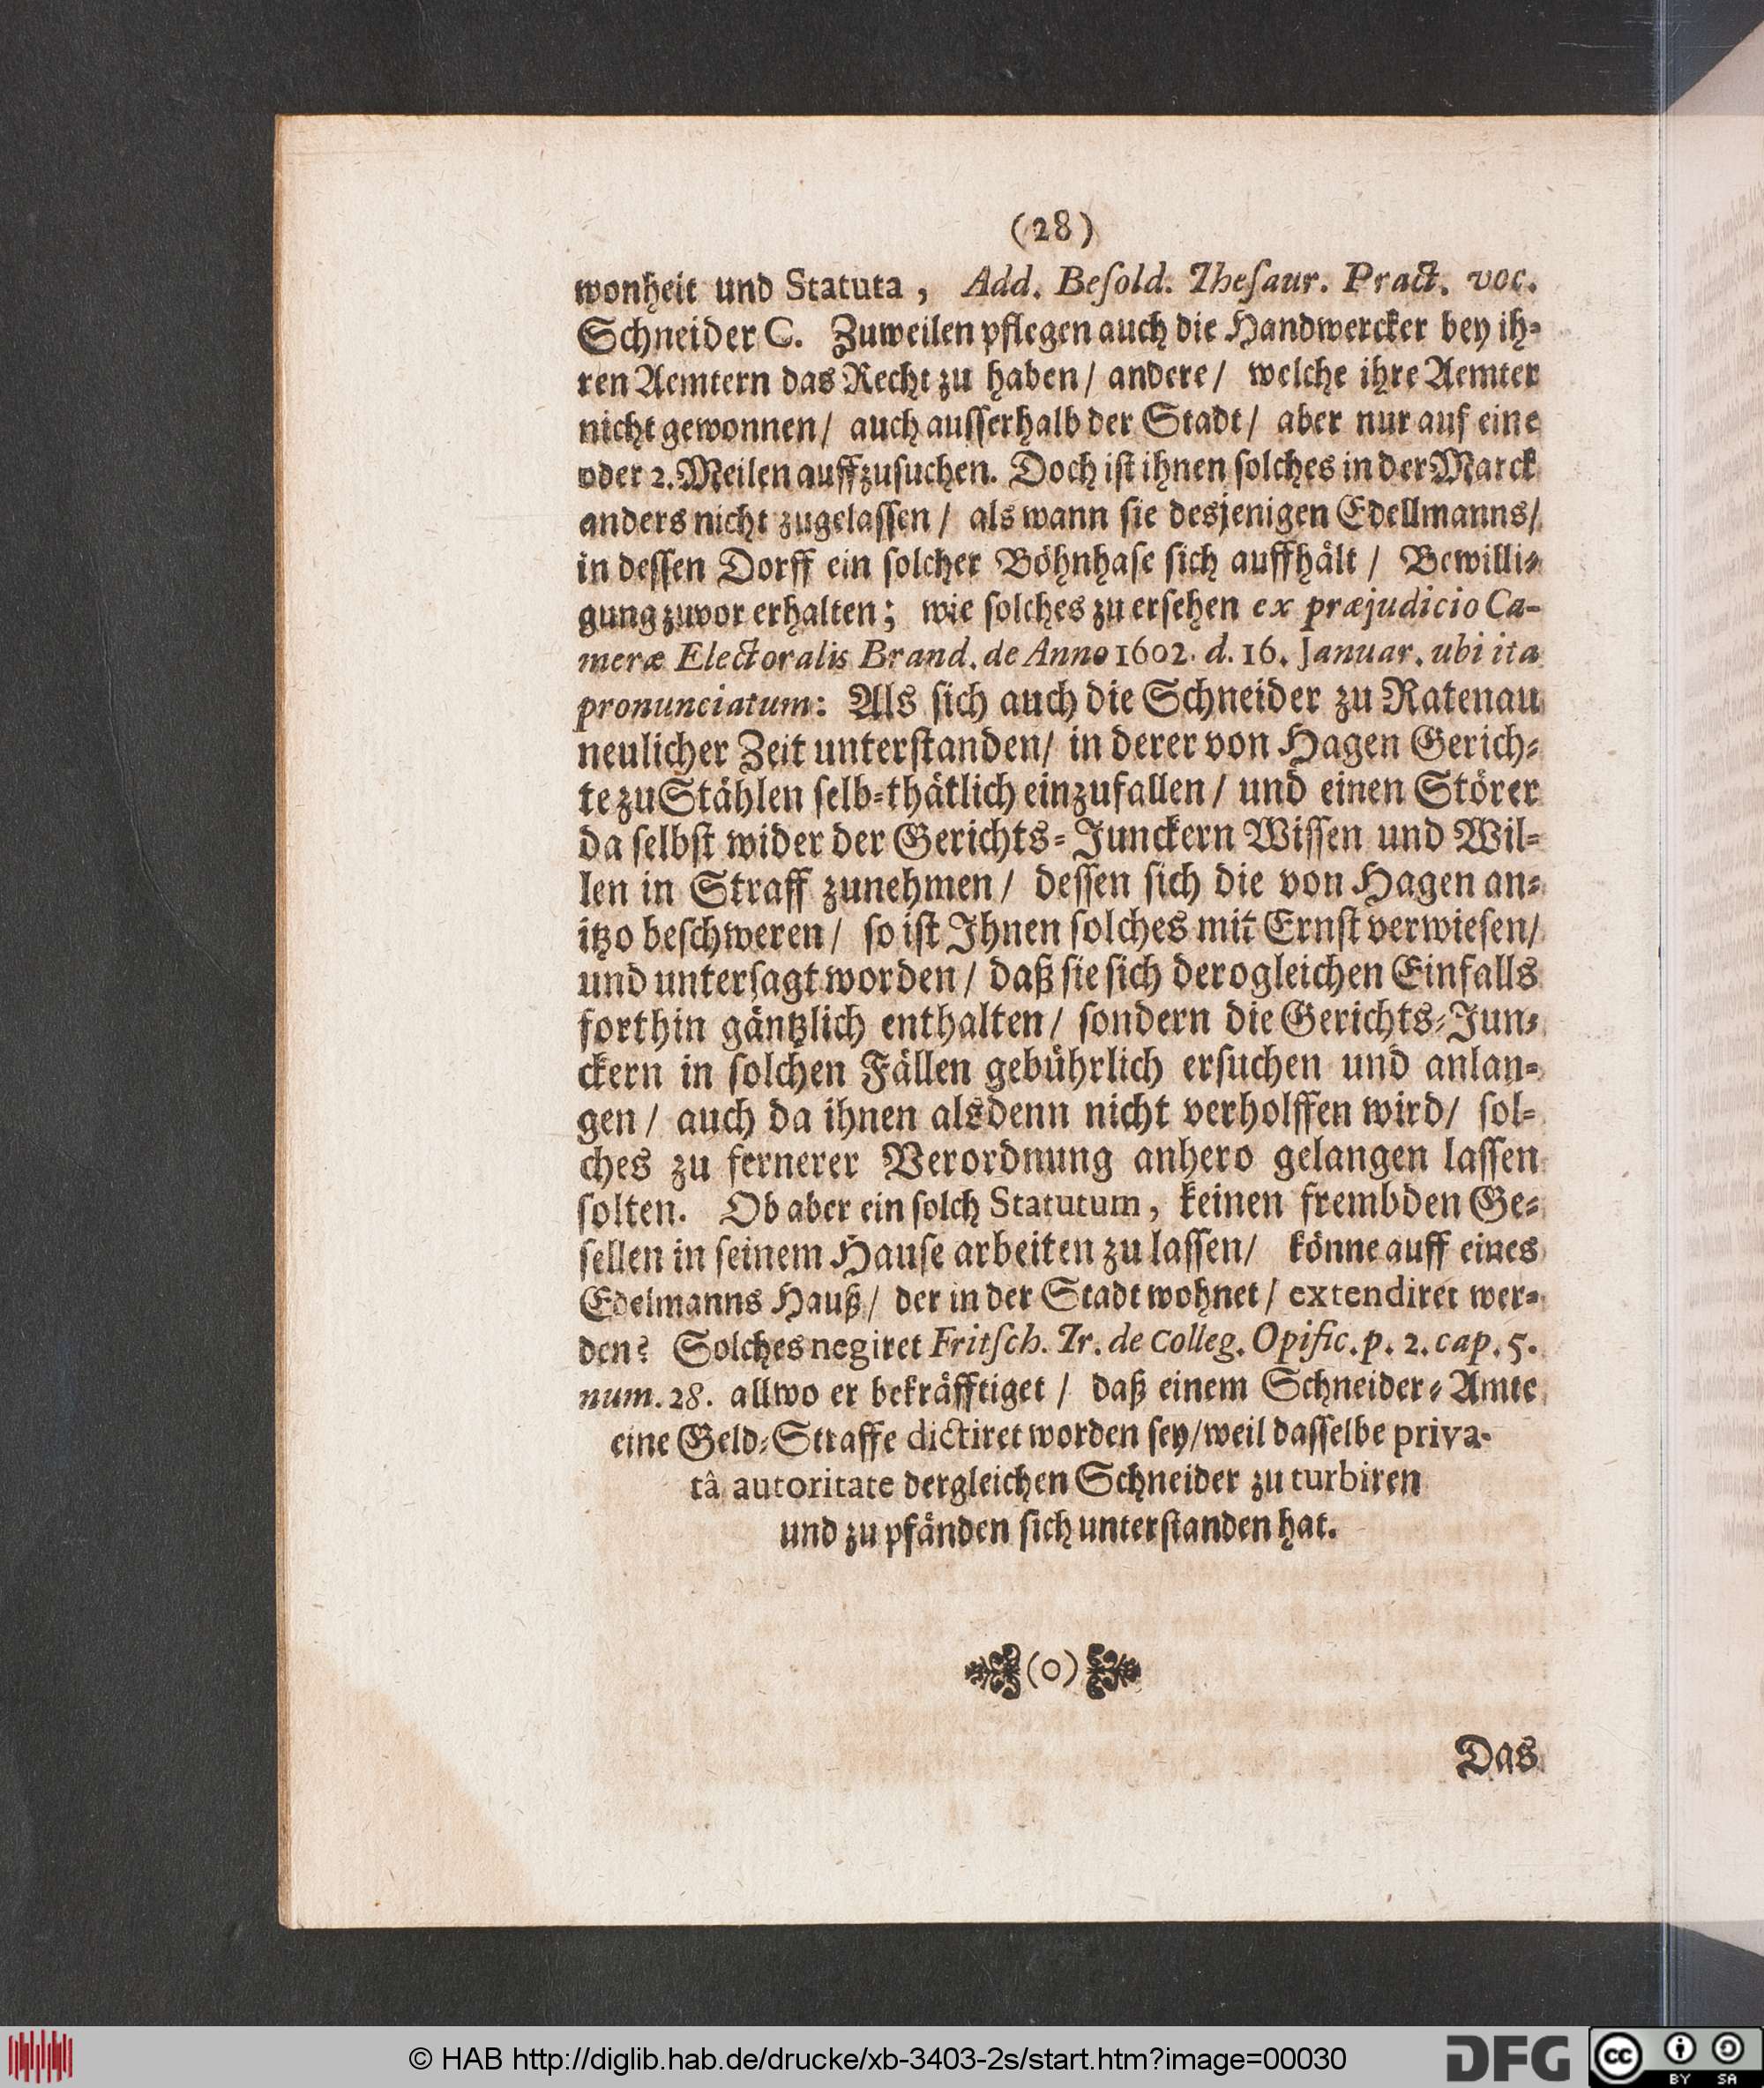 (28)
wonheit und Statuta, Add. Beſold. Theſaur. Pract. voc.
Schneider C. Zuweilen pflegen auch die Handwercker bey ih-
ren Aemtern das Recht zu haben/ andere/ welche ihre Aemter
nicht gewonnen/ auch auſſerhalb der Stadt/ aber nur auf eine
oder 2. Meilen auffzuſuchen. Doch iſt ihnen ſolches in der Marck
anders nicht zugelaſſen/ als wann ſie desjenigen Edellmanns/
in deſſen Dorff ein ſolcher Böhnhaſe ſich auffhält/ Bewilli-
gung zuvor erhalten; wie ſolches zu erſehen ex præjudicio Ca-
meræ Electoralis Brand. de Anno 1602. d. 16. Januar. ubi ita
pronunciatum: Als ſich auch die Schneider zu Ratenau
neulicher Zeit unterſtanden/ in derer von Hagen Gerich-
te zu Stählen ſelb-thätlich einzufallen/ und einen Störer
da ſelbſt wider der Gerichts-Junckern Wiſſen und Wil-
len in Straff zunehmen/ deſſen ſich die von Hagen an-
itzo beſchweren/ ſo iſt Ihnen ſolches mit Ernſt verwieſen/
und unterſagt worden/ daß ſie ſich derogleichen Einfalls
forthin gäntzlich enthalten/ ſondern die Gerichts-Jun-
ckern in ſolchen Fällen gebührlich erſuchen und anlan-
gen/ auch da ihnen alsdenn nicht verholffen wird/ ſol-
ches zu fernerer Verordnung anhero gelangen laſſen
ſolten. Ob aber ein ſolch Statutum, keinen frembden Ge-
ſellen in ſeinem Hauſe arbeiten zu laſſen/ könne auff eines
Edelmanns Hauß/ der in der Stadt wohnet/ extendiret wer-
den? Solches negiret Fritſch. Tr. de Colleg. Opific. p. 2. cap. 5.
num. 28. allwo er bekräfftiget/ daß einem Schneider-Amte
eine Geld-Straffe dictiret worden ſey/ weil daſſelbe priva-
tâ autoritate dergleichen Schneider zu turbiren
und zu pfänden ſich unterſtanden hat.
(o)
Das
© HAB http://diglib.hab.de/drucke/xb-3403-2s/start.htm?image=00030
DFG
cc BY SA